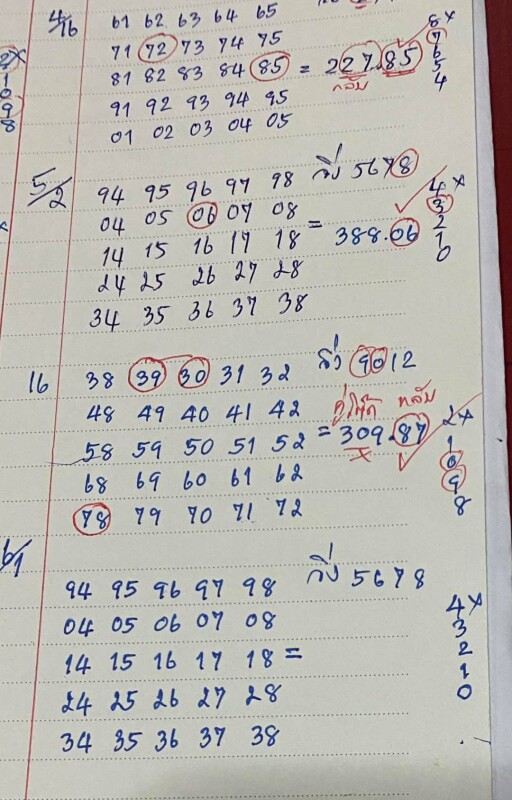 4/16 61 62 63 64 65
71 72 73 74 75 8x
81 82 83 84 85 = 227.85 7
91 92 93 94 95 กลับ 6
01 02 03 04 05 5
4
2x
1
0
9
8
5/2 94 95 96 97 98 วิ่ง 5678
04 05 06 07 08 = 388.06 4x
14 15 16 17 18 3
24 25 26 27 28 2
34 35 36 37 38 1
0
16 38 39 30 31 32 วิ่ง 9012
48 49 40 41 42 คู่โต๊ด กลับ 2x
58 59 50 51 52 = 309.87 1
68 69 60 61 62 x 0
78 79 70 71 72 9
8
6/1 94 95 96 97 98 วิ่ง 5678
04 05 06 07 08 4x
14 15 16 17 18 = 3
24 25 26 27 28 2
34 35 36 37 38 1
0